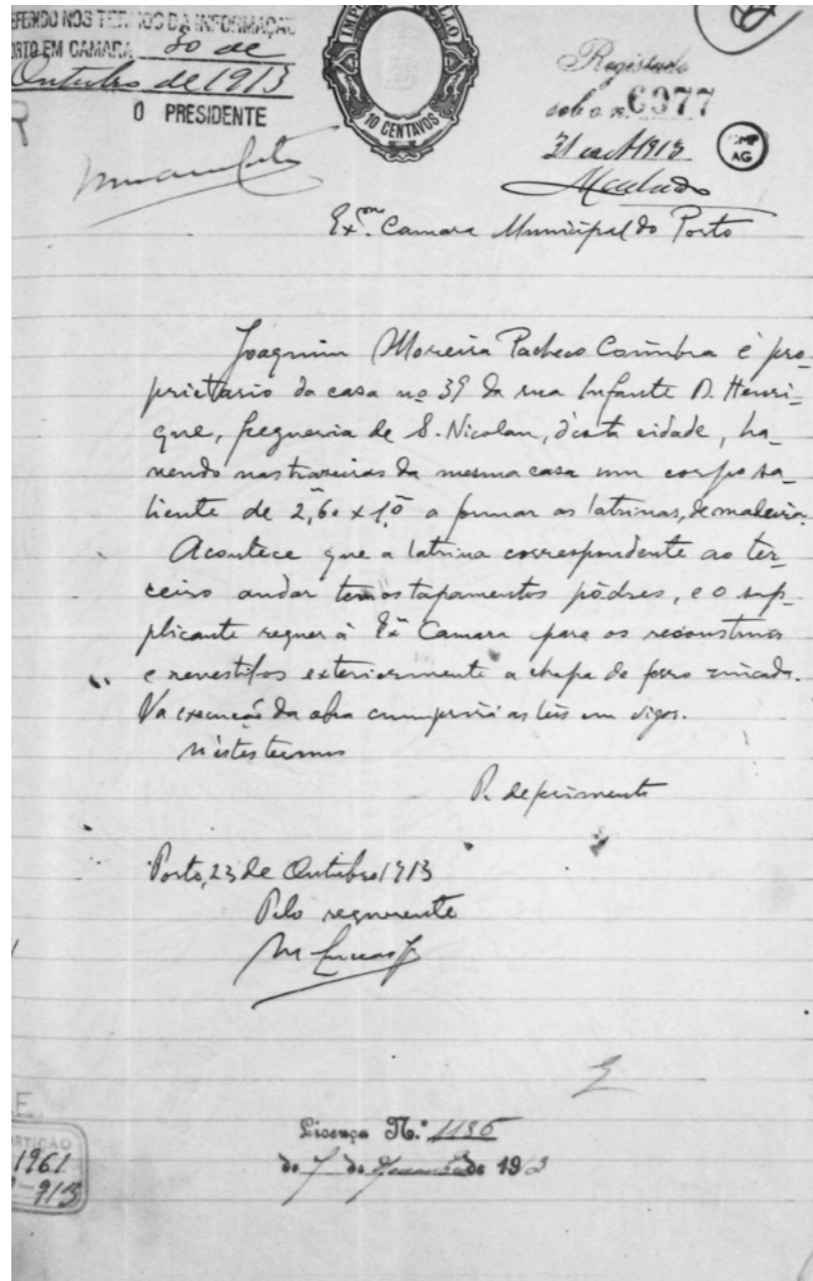 EFERIDO NOS TERMOS DA INFORMAÇÃO
PORTO EM CAMARA 30 de
Outubro de 1913
O PRESIDENTE
10 CENTAVOS
Registado
sob o n.º 6977
31 out 1913
Machado
CMP
AG
Ex.ma Camara Municipal do Porto
Joaquim Moreira Pacheco Coimbra é pro-
prietario da casa nº 39 da rua Infante D. Henri-
que, freguesia de S. Nicolau, d'esta cidade, ha-
vendo nas trazeiras da mesma casa um corpo sa-
liente de 2,60 x 1,0 a formar as latrinas, de madeira.
Acontece que a latrina correspondente ao ter-
ceiro andar tem os tapamentos pôdres, e o sup-
plicante requer à Exª Camara para os reconstruir
e revestilos exteriormente a chapa de ferro zincada.
Na execução da obra cumprirá as leis em vigor.
N'estes termos
P. deferimento
Porto, 23 de Outubro 1913
Pelo requerente
Licença N.º 1186
de 7 de de 1913
1961
-913